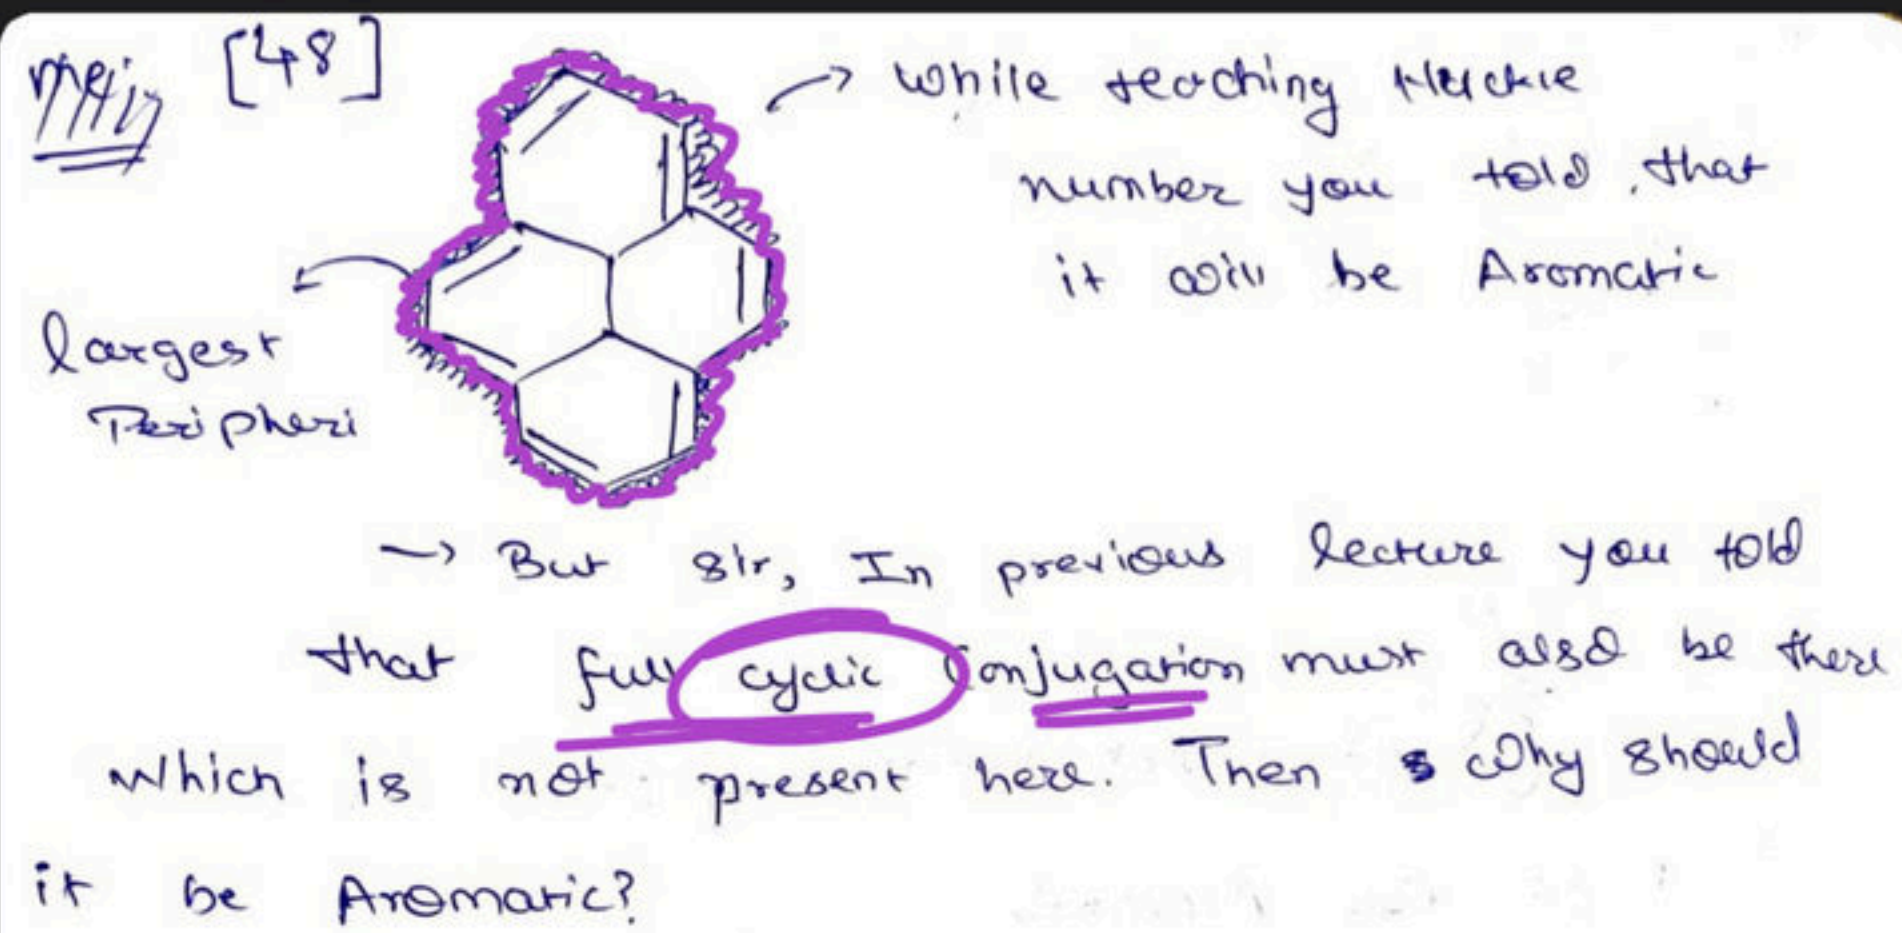 [48]
→ While teaching Huckle
number you told that
it will be Aromatic
largest
Peripheri
→ But sir, In previous lecture you told
that full cyclic Conjugation must also be there
which is not present here. Then why should
it be Aromatic?